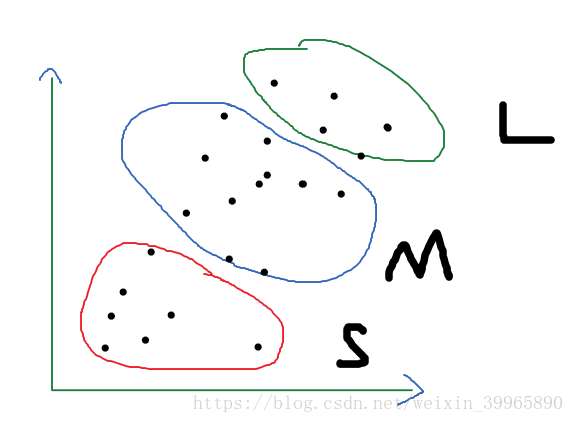 L
M
S
https://blog.csdn.net/weixin_39965890